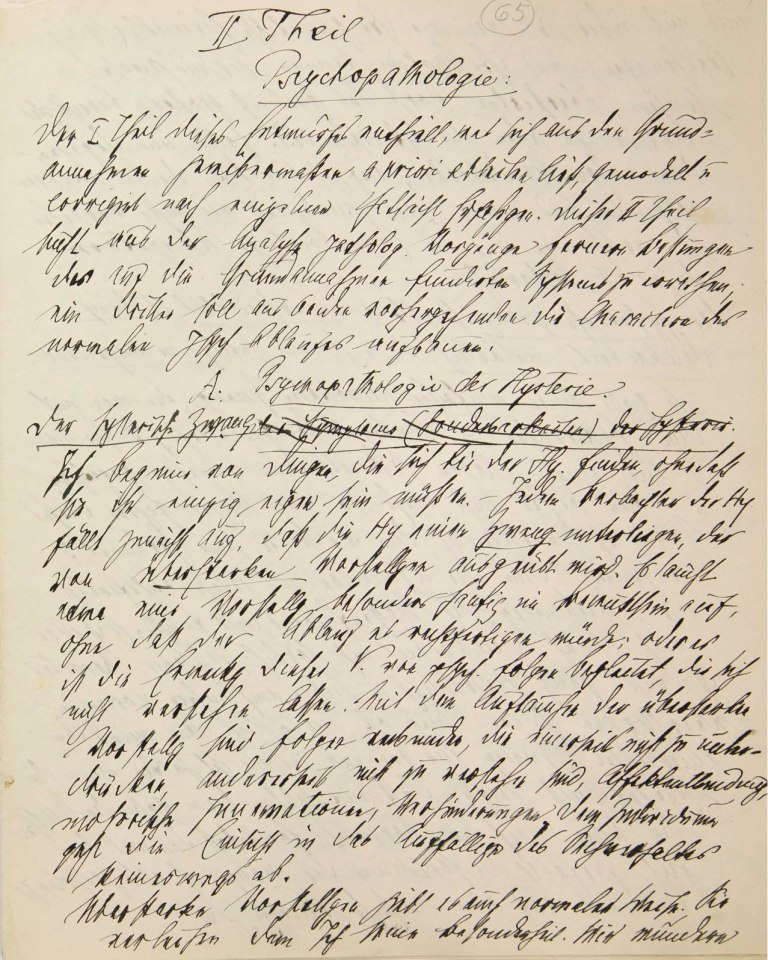 65
II Theil
Psychopathologie:
Der I Theil dieses Entwurfes enthielt, was sich aus den Grund=
annahmen gewissermaßen a priori ableiten ließ, gemodelt u
corrigirt nach einzelnen Erfahrgen. Dieser II Theil
sucht aus der Analyse patholog. Vorgänge fernere Bestimgen
des auf die Grundannahmen fundirten Systems zu errathen,
ein dritter soll aus beiden vorhergehenden die Charactere des
normalen psych Ablaufes aufbauen.
A. Psychopathologie der Hysterie.
Der hysterische Zwang der Hysterie.
Ich beginne von Dingen, die sich bei der Hy. finden, ohne daß
sie ihr einzig eigen sein müßten. – Jedem Beobachter der Hy
fällt zunächst auf, daß die Hy einem Zwang unterliegen, der
von überstarken Vorstellgen ausgeübt wird. Es taucht
etwa eine Vorstellg besonders häufig im Bewußtsein auf,
ohne daß der Ablauf es rechtfertigen würde; oder es
ist die Erweckg dieser V. von psych. Folgen begleitet, die sich
nicht verstehen lassen. Mit dem Auftauchen der überstarken
Vorstellg sind Folgen verbunden, die einerseits nicht zu unter-
drücken, anderseits nicht zu verstehen sind, Affektentbindung,
motorische Innervationen, Verhinderungen. Dem Individuum
geht die Einsicht in das Auffällige des Sachverhaltes
keineswegs ab.
Überstarke Vorstellgen gibt es auch normaler Weise. Sie
verleihen dem Ich seine Besonderheit. Wir wundern